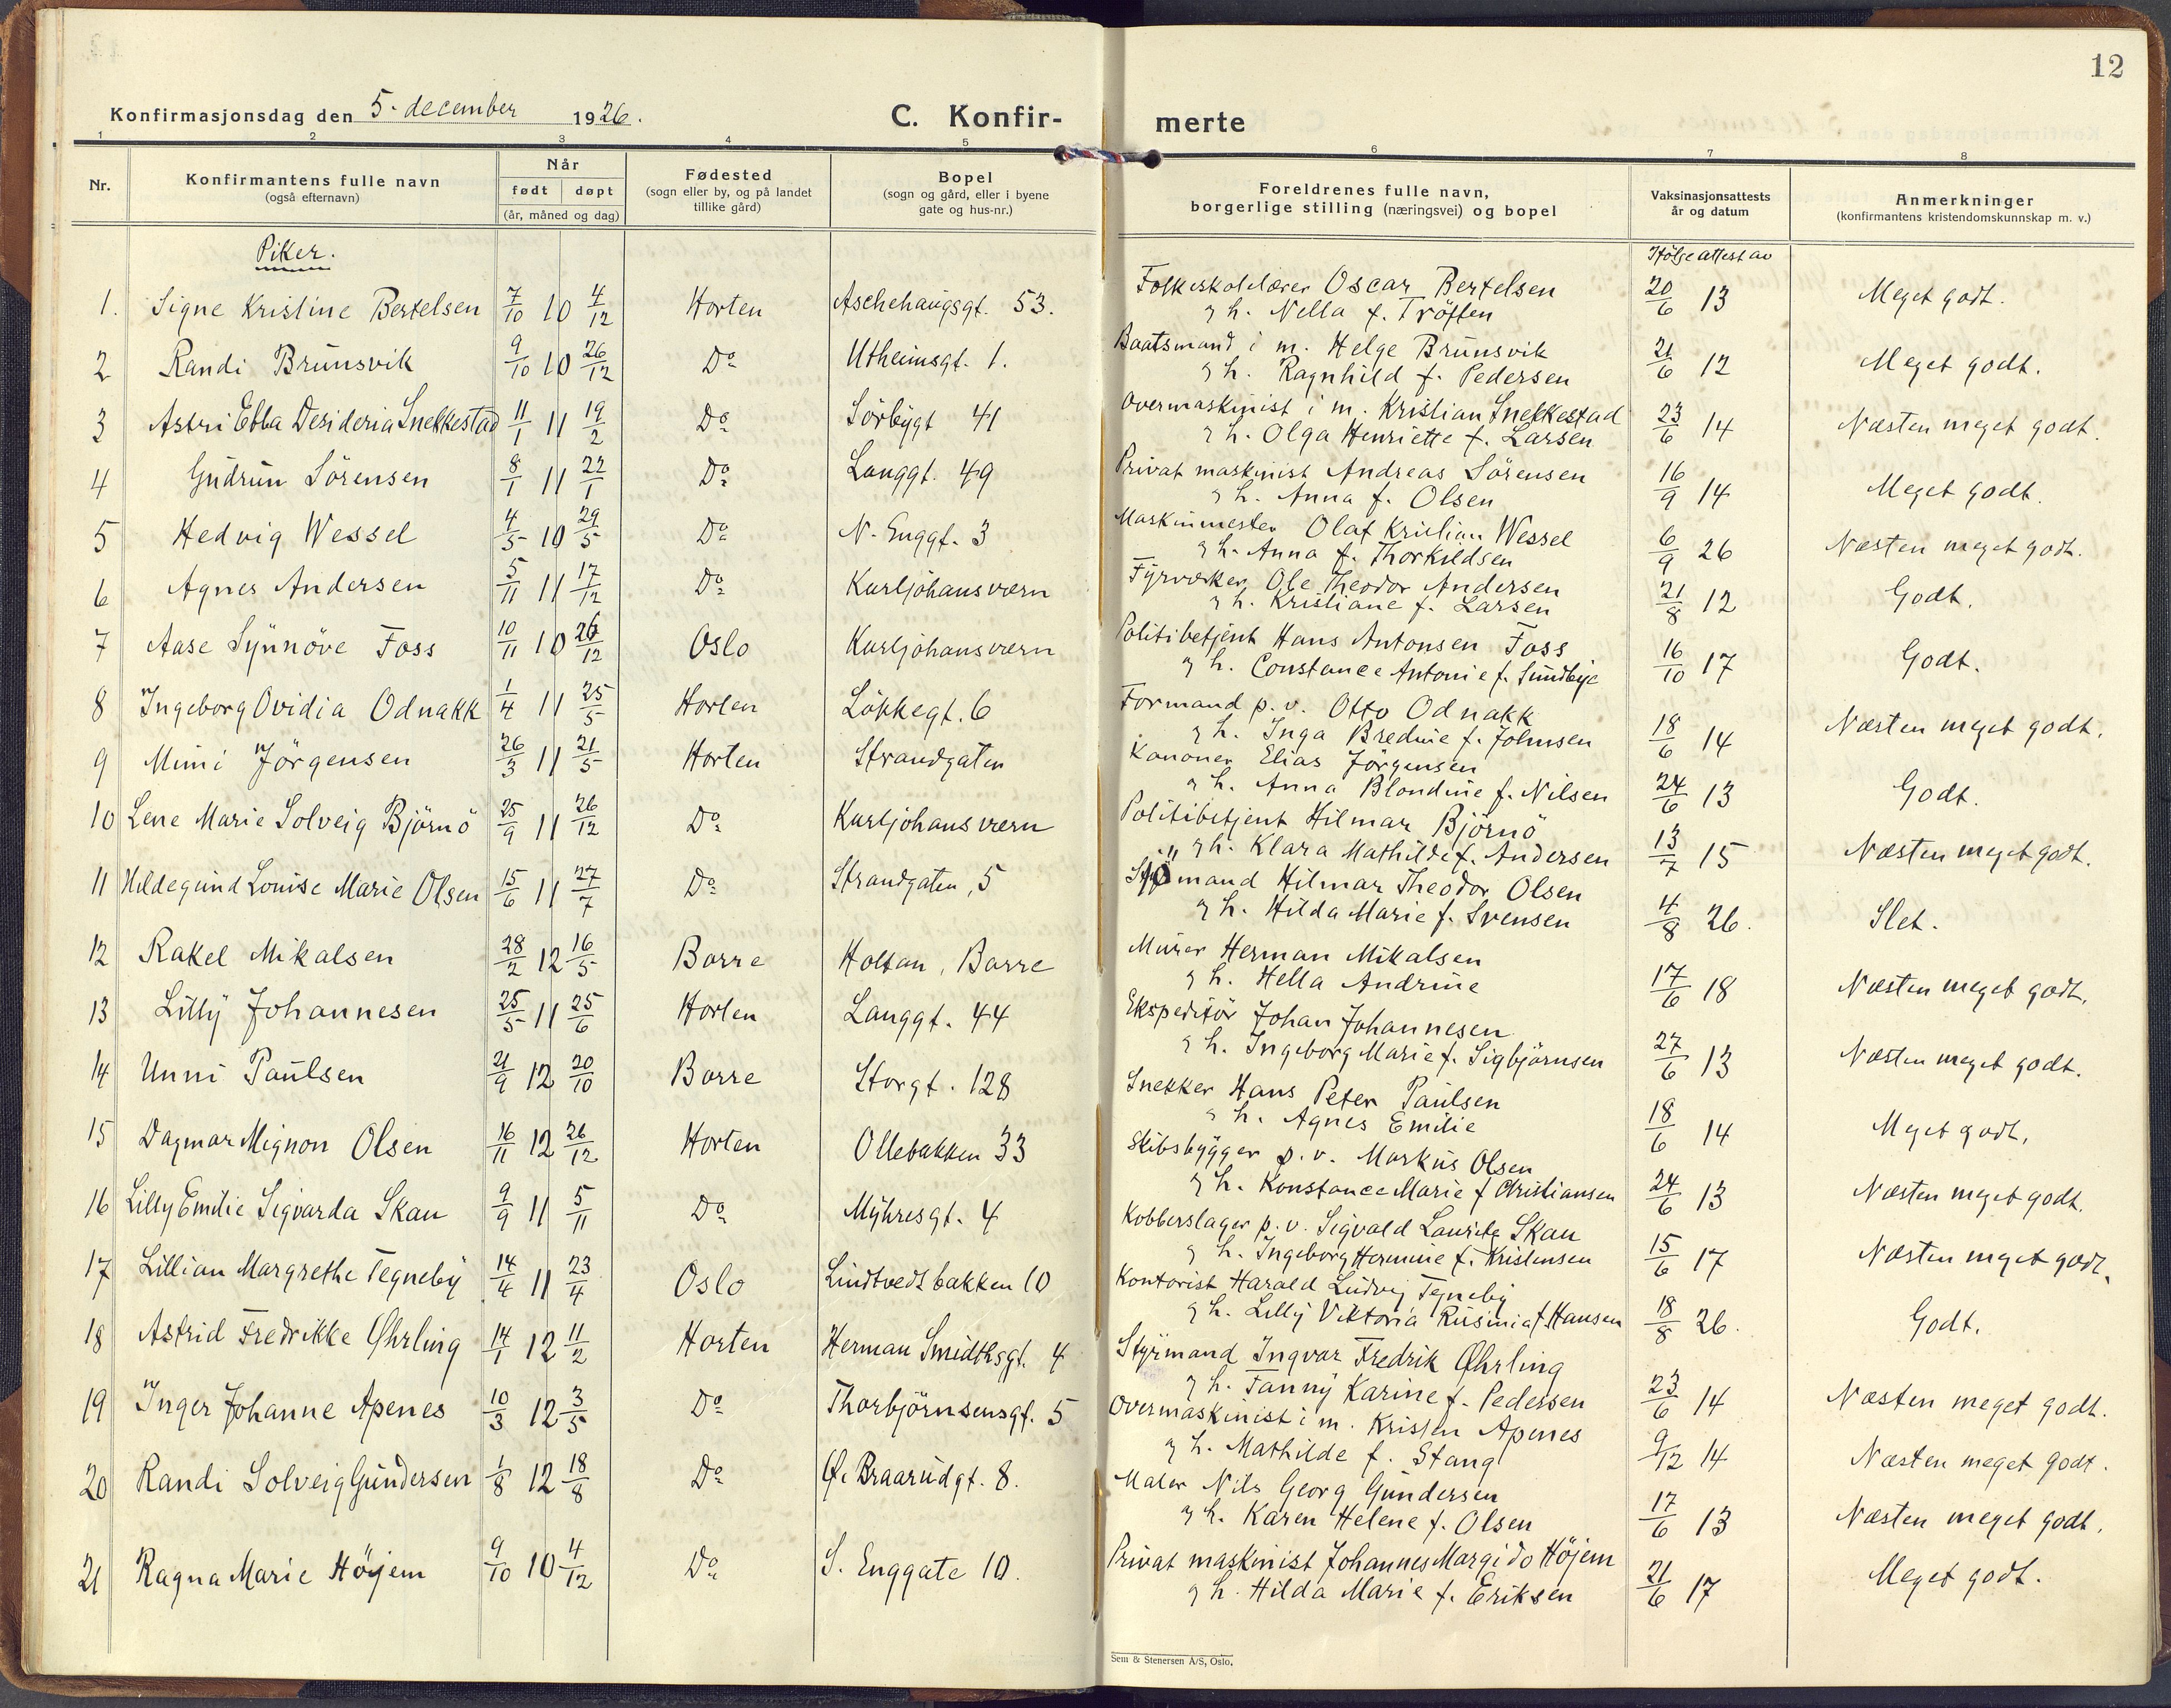 12
Konfirmasjonsdag den 5. december 1926.
C. Konfir-
merte
1 2 3 4 5 6 7 8
Nr.
Konfirmantens fulle navn
(også efternavn)
Når
født døpt
(år, måned og dag)
Fødested
(sogn eller by, og på landet
tillike gård)
Bopel
(sogn og gård, eller i byene
gate og hus-nr.)
Foreldrenes fulle navn,
borgerlige stilling (næringsvei) og bopel
Vaksinasjonsattests
år og datum
Anmerkninger
(konfirmantens kristendomskunnskap m. v.)
Piker.
Ifölge attest av
1. Signe Kristine Bertelsen 7/10 10 4/12 Horten Aschehaugsgt. 53. Folkeskolelærer Oscar Bertelsen 20/6 13 Meget godt.
og h. Nella f. Tröften
2 Randi Brunsvik 9/10 10 26/12 Do Utheimsgt. 1. Baatsmand i m. Helge Brunsvik 21/6 12 Meget godt.
og h. Ragnhild f. Pedersen
3 Astri Ebba Desideria Snekkestad 11/1 11 19/2 Do Sörbygt 41 Overmaskinist i m. Kristian Snekkestad 23/6 14 Næsten meget godt.
og h. Olga Henriette f. Larsen
4 Gudrun Sörensen 8/1 11 22/1 Do Langgt. 49 Privat maskinist Andreas Sörensen 16/9 14 Meget godt.
og h. Anna f. Olsen
5 Hedvig Wessel 4/5 10 29/5 Do N. Enggt. 3 Maskinmester Olaf Kristian Wessel 6/9 26 Næsten meget godt.
og h. Anna f. Thorkildsen
6 Agnes Andersen 5/11 11 17/12 Do Karljohansværn Fyrværker Ole Theodor Andersen 21/8 12 Godt.
og h. Kristiane f. Larsen
7 Aase Synnöve Foss 10/11 10 26/12 Oslo Karljohansværn Politibetjent Hans Antonsen Foss 16/10 17 Godt.
og h. Constance Antonie f. Sundbye
8 Ingeborg Ovidia Odnakk 1/4 11 25/5 Horten Lökkegt. 6 Formand p. v. Otto Odnakk 18/6 14 Næsten meget godt.
og h. Inga Bredine f. Johnsen
9 Mimi Jörgensen 26/3 11 21/5 Horten Strandgaten Kanoner Elias Jörgensen 24/6 13 Godt.
og h. Anna Blondine f. Nilsen
10 Lene Marie Solveig Björnö 25/9 11 26/12 Do Karljohansværn Politibetjent Hilmar Björnö 13/7 15 Næsten meget godt.
og h. Klara Mathilde f. Andersen
11 Hildegund Louise Marie Olsen 15/6 11 27/7 Do Strandgaten, 5 Sjömand Hilmar Theodor Olsen 4/8 26. Slet.
og h. Hilda Marie f. Svensen
12 Rakel Mikalsen 28/2 12 16/5 Borre Holtan, Borre Murer Herman Mikalsen 17/6 18 Næsten meget godt.
og h. Hella Andrine
13 Lilly Johannesen 25/5 11 25/6 Horten Langgt. 44 Ekspeditör Johan Johannesen 27/6 13 Næsten meget godt.
og h. Ingeborg Marie f. Sigbjörnsen
14 Unni Paulsen 21/9 12 20/10 Borre Storgt. 128 Snekker Hans Peter Paulsen 18/6 14 Meget godt.
og h. Agnes Emilie
15 Dagmar Mignon Olsen 16/11 12 26/12 Horten Ollebakken 33 Skibsbygger p. v. Markus Olsen 24/6 13 Næsten meget godt.
og h. Konstance Marie f. Christiansen
16 Lilly Emilie Sigvarda Skau 9/9 11 5/11 Do Myhresgt. 4 Kobberslager p. v. Sigvald Lauritz Skau 15/6 17 Næsten meget godt.
og h. Ingeborg Hermine f. Kristensen
17 Lillian Margrethe Tegneby 14/4 11 23/4 Oslo Lindtvedtbakken 10 Kontorist Harald Ludvig Tegneby 18/8 26. Godt.
og h. Lilly Viktoria Rusinia f. Hansen
18 Astrid Fredrikke Øhrling 14/1 12 11/2 Horten Herman Smidthsgt. 4 Styrmand Ingvar Fredrik Øhrling 23/6 14 Næsten meget godt.
og h. Fanny Karine f. Pedersen
19 Inger Johanne Apenes 10/3 12 3/5 Do Thorbjörnsensgt. 5 Overmaskinist i m. Kristen Apenes 9/12 14 Næsten meget godt.
og h. Mathilde f. Stang
20 Randi Solveig Gundersen 1/8 12 18/8 Do Ø. Braarudgt. 8. Maler Nils Georg Gundersen 17/6 13 Næsten meget godt.
og h. Karen Helene f. Olsen
21 Ragna Marie Höyem 9/10 10 4/12 Do S. Enggate 10. Privat maskinist Johannes Margido Höjem 21/6 17 Meget godt.
og h. Hilda Marie f. Eriksen
Sem & Stenersen A/S, Oslo.